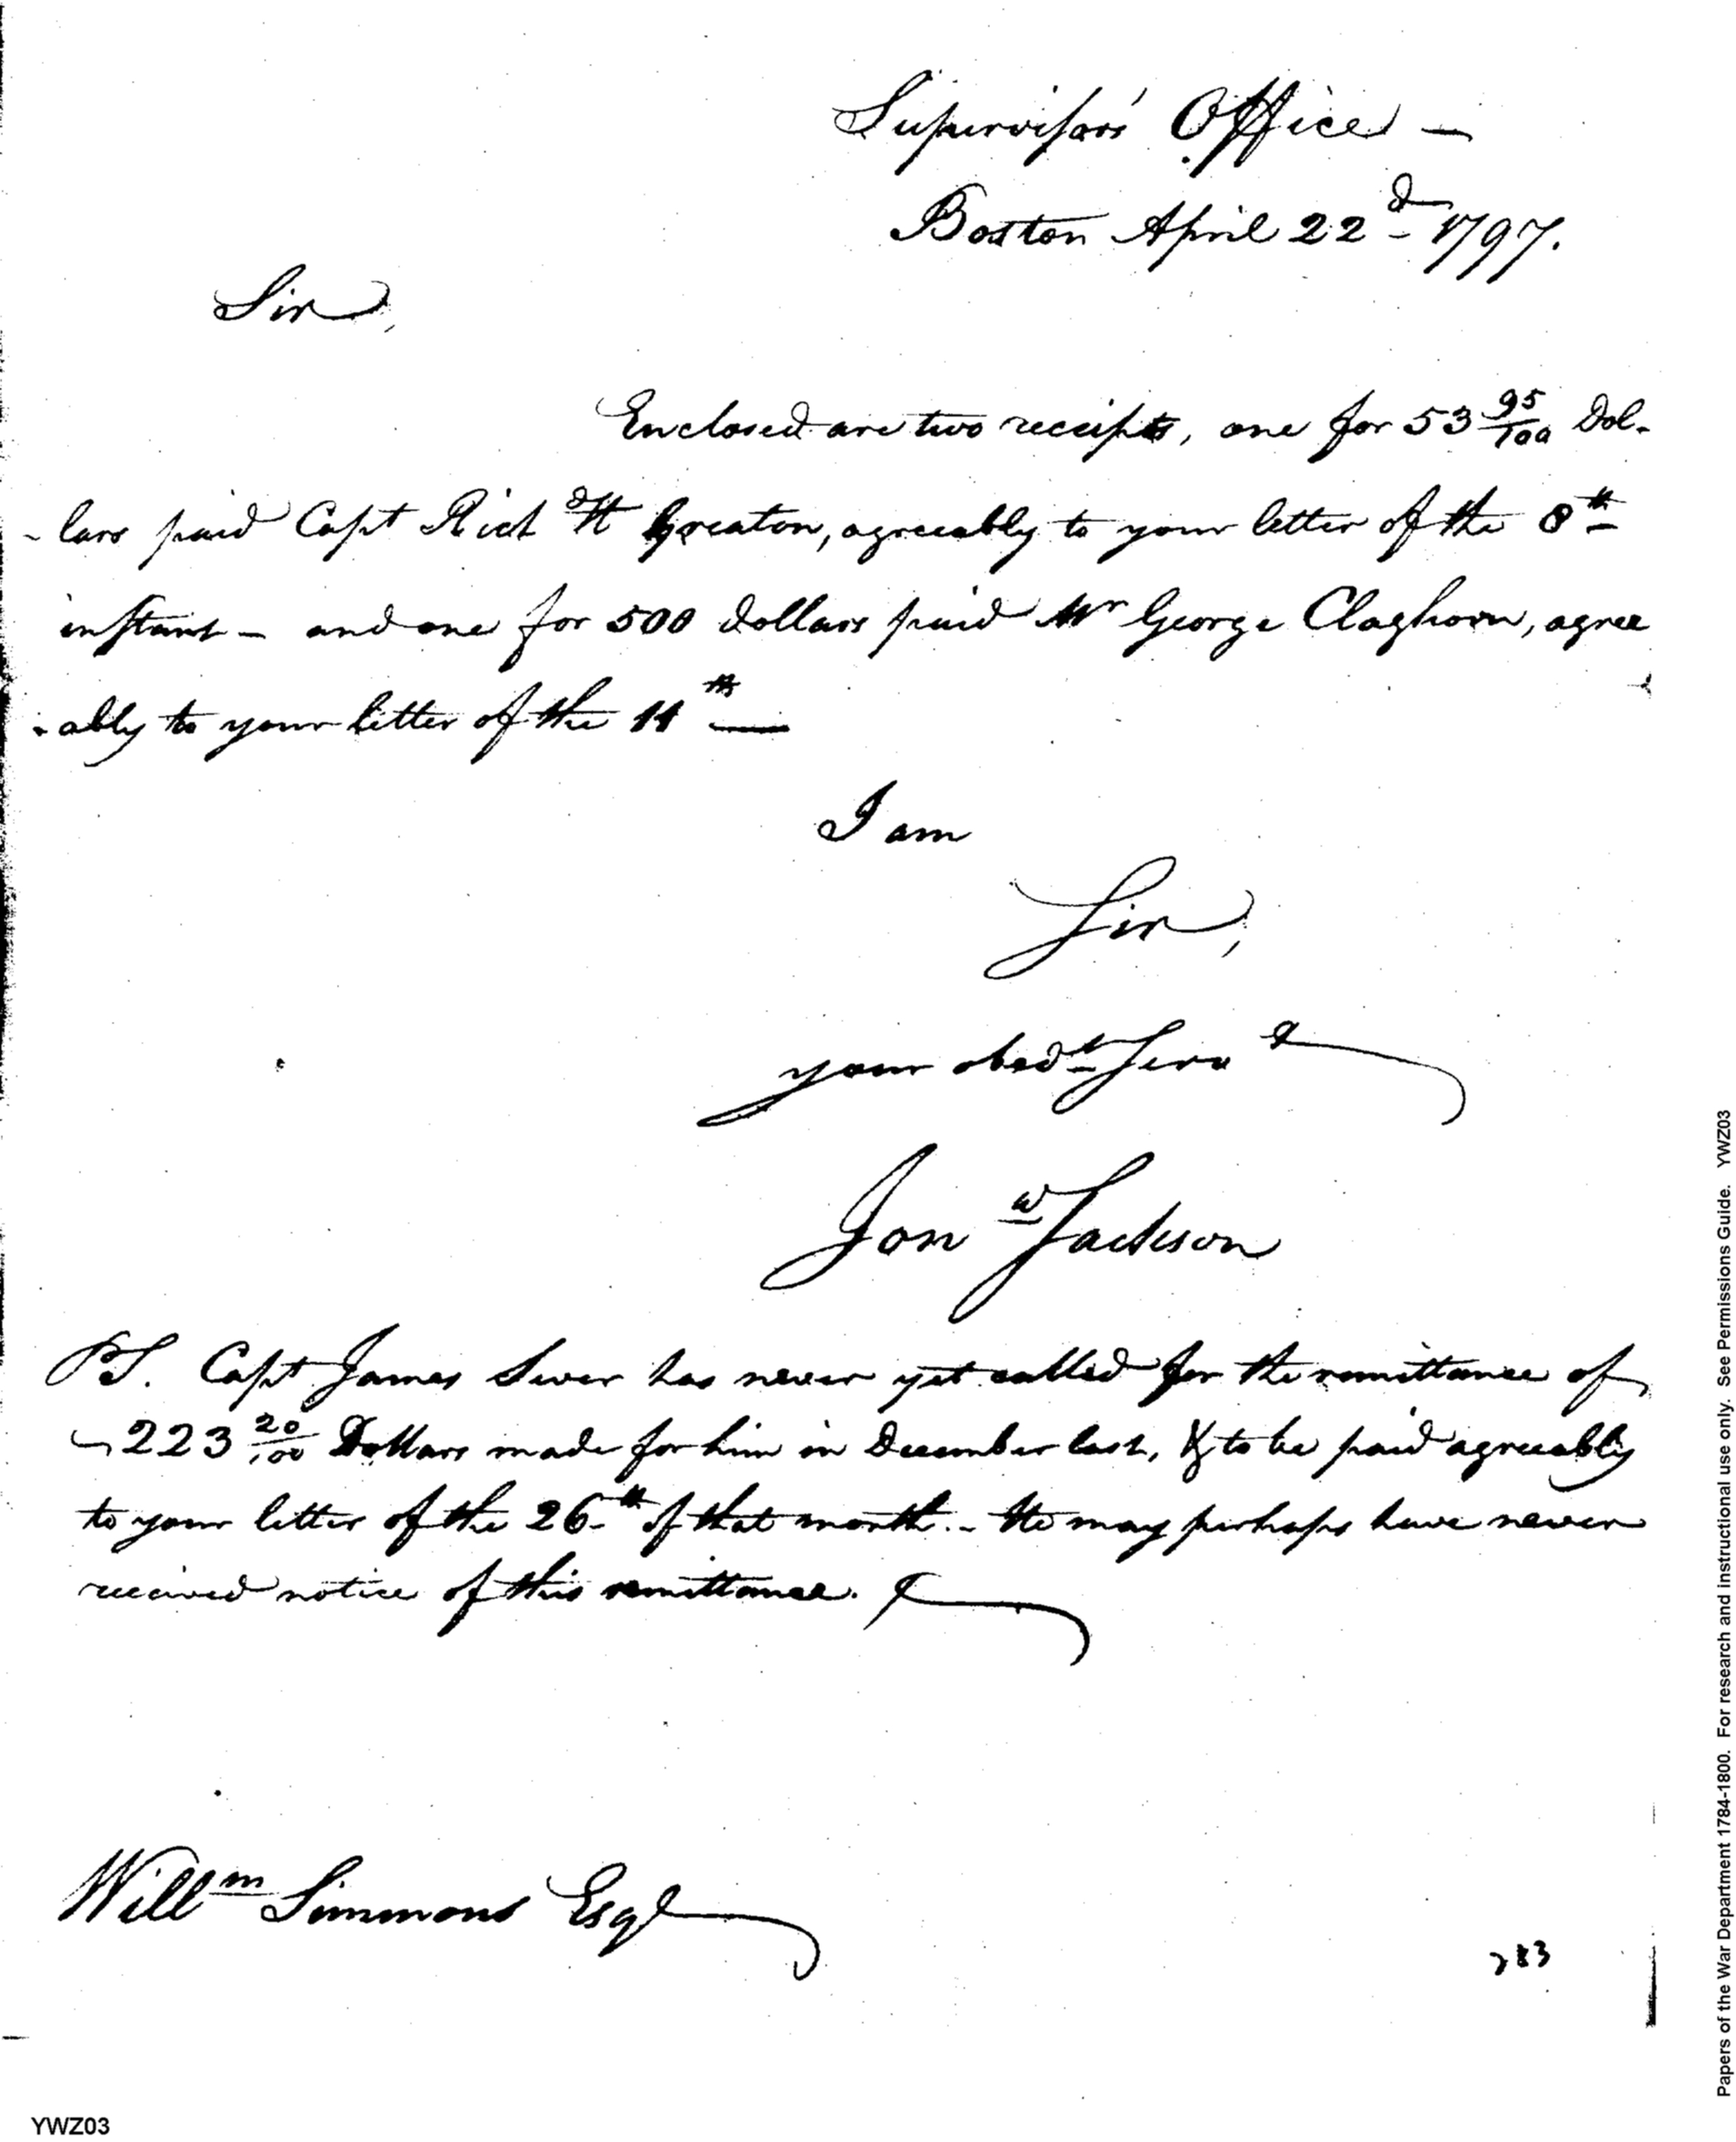 Supervisors' Office —
Boston April 22d 1797.
Sir,
Enclosed are two receipts, one for 53 95/100 Dol-
-lars paid Capt Richd H Greaton, agreeably to your letter of the 8th
instant — and one for 500 dollars paid Mr George Claghorn, agree
-ably to your letter of the 11th —
I am
Sir,
your obedt Servt
Jona Jackson
PS. Capt James Sever has never yet called for the remittance of
223 20/100 Dollars made for him in December last, & to be paid agreeably
to your letter of the 26th of that month. - He may perhaps have never
received notice of this remittance.
Willm Simmons Esqr
283
YWZ03
Papers of the War Department 1784-1800. For research and instructional use only. See Permissions Guide. YWZ03